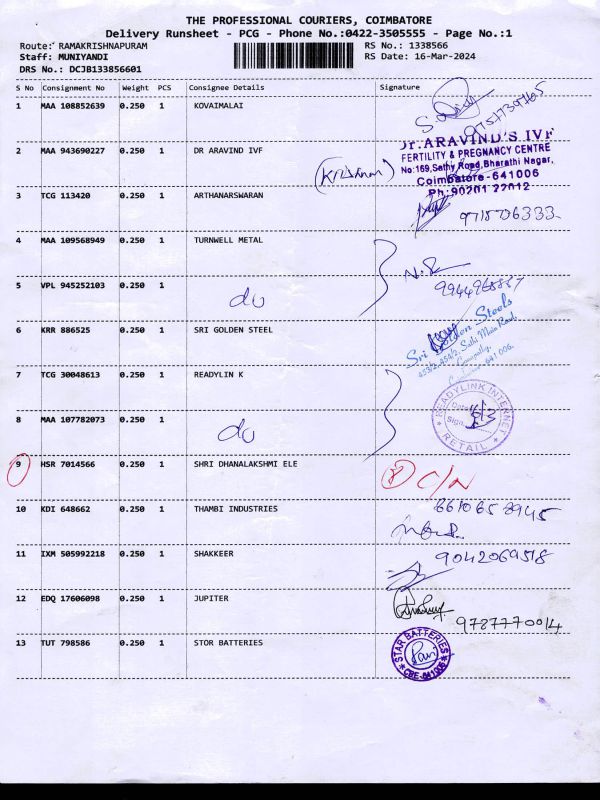 THE PROFESSIONAL COURIERS, COIMBATORE
Delivery Runsheet - PCG - Phone No.:0422-3505555 - Page No.:1
Route: RAMAKRISHNAPURAM RS No.: 1338566
Staff: MUNIYANDI RS Date: 16-Mar-2024
DRS No.: DCJB133856601
S No Consignment No Weight PCS Consignee Details Signature
1 MAA 108852639 0.250 1 KOVAIMALAI
2 MAA 943690227 0.250 1 DR ARAVIND IVF
(Krishnan)
Dr.ARAVIND'S IVF
FERTILITY & PREGNANCY CENTRE
No:169,Sathy Road,Bharathi Nagar,
Coimbatore-641006
Ph:90201 22012
3 TCG 113420 0.250 1 ARTHANARSWARAN
4 MAA 109568949 0.250 1 TURNWELL METAL
5 VPL 945252103 0.250 1
do
6 KRR 886525 0.250 1 SRI GOLDEN STEEL
Sri Golden Steels
7 TCG 30048613 0.250 1 READYLIN K
READYLINK INTERNET
Date 16/3
Sign.
* RETAIL *
8 MAA 107782073 0.250 1
do
9 HSR 7014566 0.250 1 SHRI DHANALAKSHMI ELE
C/N
10 KDI 648662 0.250 1 THAMBI INDUSTRIES
11 IXM 505992218 0.250 1 SHAKKEER 9042069518
12 EDQ 17606098 0.250 1 JUPITER
9787770014
13 TUT 798586 0.250 1 STOR BATTERIES
STAR BATTERIES
* CBE-641006 *